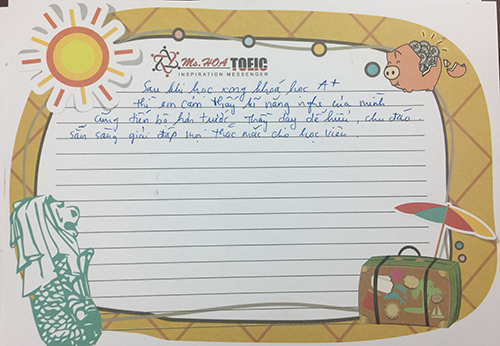 Ms. HOA TOEIC
INSPIRATION MESSENGER
Sau khi học xong khoá học A+
thì em cảm thấy kĩ năng nghe của mình
cũng tiến bộ hơn trước. Thầy dạy dễ hiểu, chu đáo.
sẵn sàng giải đáp mọi thắc mắc cho học viên.